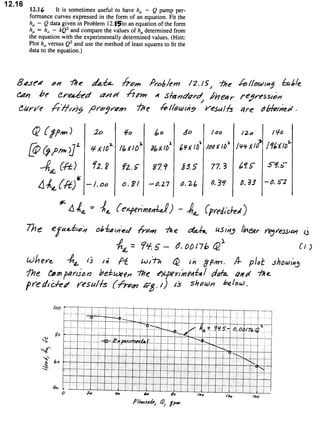 12.16
12.16 It is sometimes useful to have hₐ – Q pump per-
formance curves expressed in the form of an equation. Fit the
hₐ – Q data given in Problem 12.15 to an equation of the form
hₐ = hₒ – kQ² and compare the values of hₐ determined from
the equation with the experimentally determined values. (Hint:
Plot hₐ versus Q² and use the method of least squares to fit the
data to the equation.)
Based on the data from Problem 12.15, the following table
can be created and from a standard, linear regression
curve fitting program the following results are obtained.
Q (gpm) 20 40 60 80 100 120 140
[Q (gpm)]² 4x10² 16x10² 36x10² 64x10² 100x10² 144x10² 196x10²
hₐ (ft) 92.8 92.5 87.9 83.5 77.3 69.5 59.5
Δhₐ (ft)* -1.00 0.81 -0.27 0.26 0.39 0.33 -0.52
* Δhₐ = hₐ (experimental) - hₐ (predicted)
The equation obtained from the data using linear regression is
hₐ = 94.5 - 0.00176 Q² (1)
where hₐ is in ft with Q in gpm. A plot showing
the comparison between the experimental data and the
predicted results (from Eq. 1) is shown below.
100
hₐ = 94.5 - 0.00176 Q²
80
Experimental
Head, hₐ, ft
60
40
0 20 40 60 80 100 120 140
Flowrate, Q, gpm